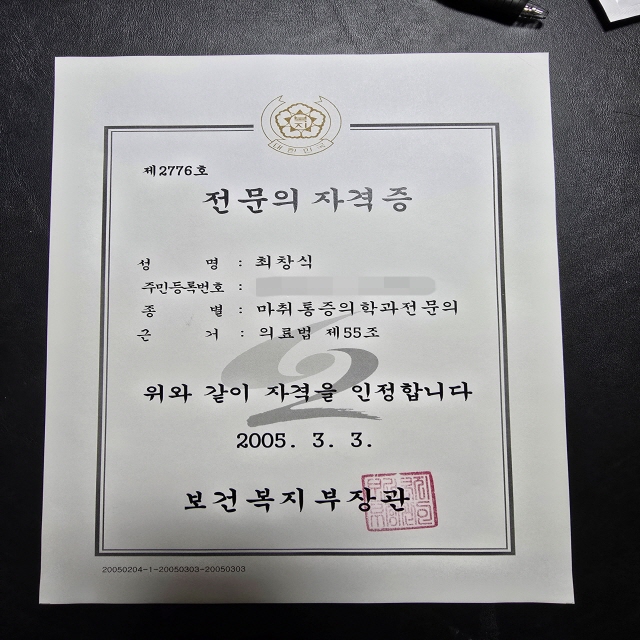 복지
대한민국
제2776호
전문의 자격증
성 명 : 최창식
주민등록번호 :
종 별 : 마취통증의학과전문의
근 거 : 의료법 제55조
위와 같이 자격을 인정합니다
2005. 3. 3.
보건복지부장관
20050204-1-20050303-20050303